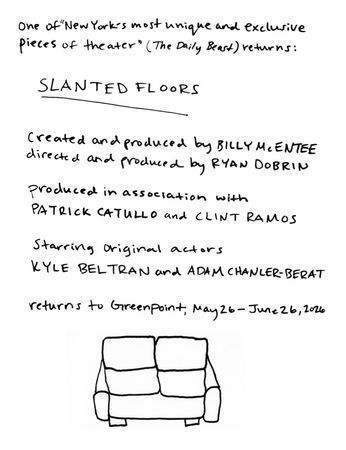 One of "New York's most unique and exclusive
pieces of theater" (The Daily Beast) returns:
SLANTED FLOORS
Created and produced by BILLY McENTEE
directed and produced by RYAN DOBRIN
produced in association with
PATRICK CATULLO and CLINT RAMOS
Starring original actors
KYLE BELTRAN and ADAM CHANLER-BERAT
returns to Greenpoint, May 26 – June 26, 2026